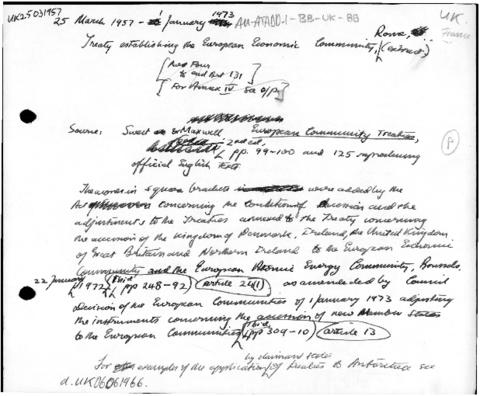 UK25031957
25 March 1957 - 1 January 1973
AU-ATADD-1-BB-UK-BB
UK.
France
Treaty establishing the European Economic Community, Rome, (extract)
Part Four
and Art 131
For Annex IV see o/p
Source: Sweet & Maxwell European Community Treaties,
2nd ed. pp. 99-100 and 125 reproducing
official English Text
P
The words in square brackets were added by the
Act concerning the conditions of accession and the
adjustments to the Treaties annexed to the Treaty concerning
the accession of the Kingdom of Denmark, Ireland, the United Kingdom
of Great Britain and Northern Ireland to the European Economic
Community and the European Atomic Energy Community, Brussels,
22 January 1972 (Ibid pp 248-92) (article 24(1) as amended by Council
decision of the European Communities of 1 January 1973 adjusting
the instruments concerning the accession of new Member States
to the European Communities (Ibid pp 309-10) article 13
For examples of the application by claimant states of treaties to Antarctica see
d. UK06061966.